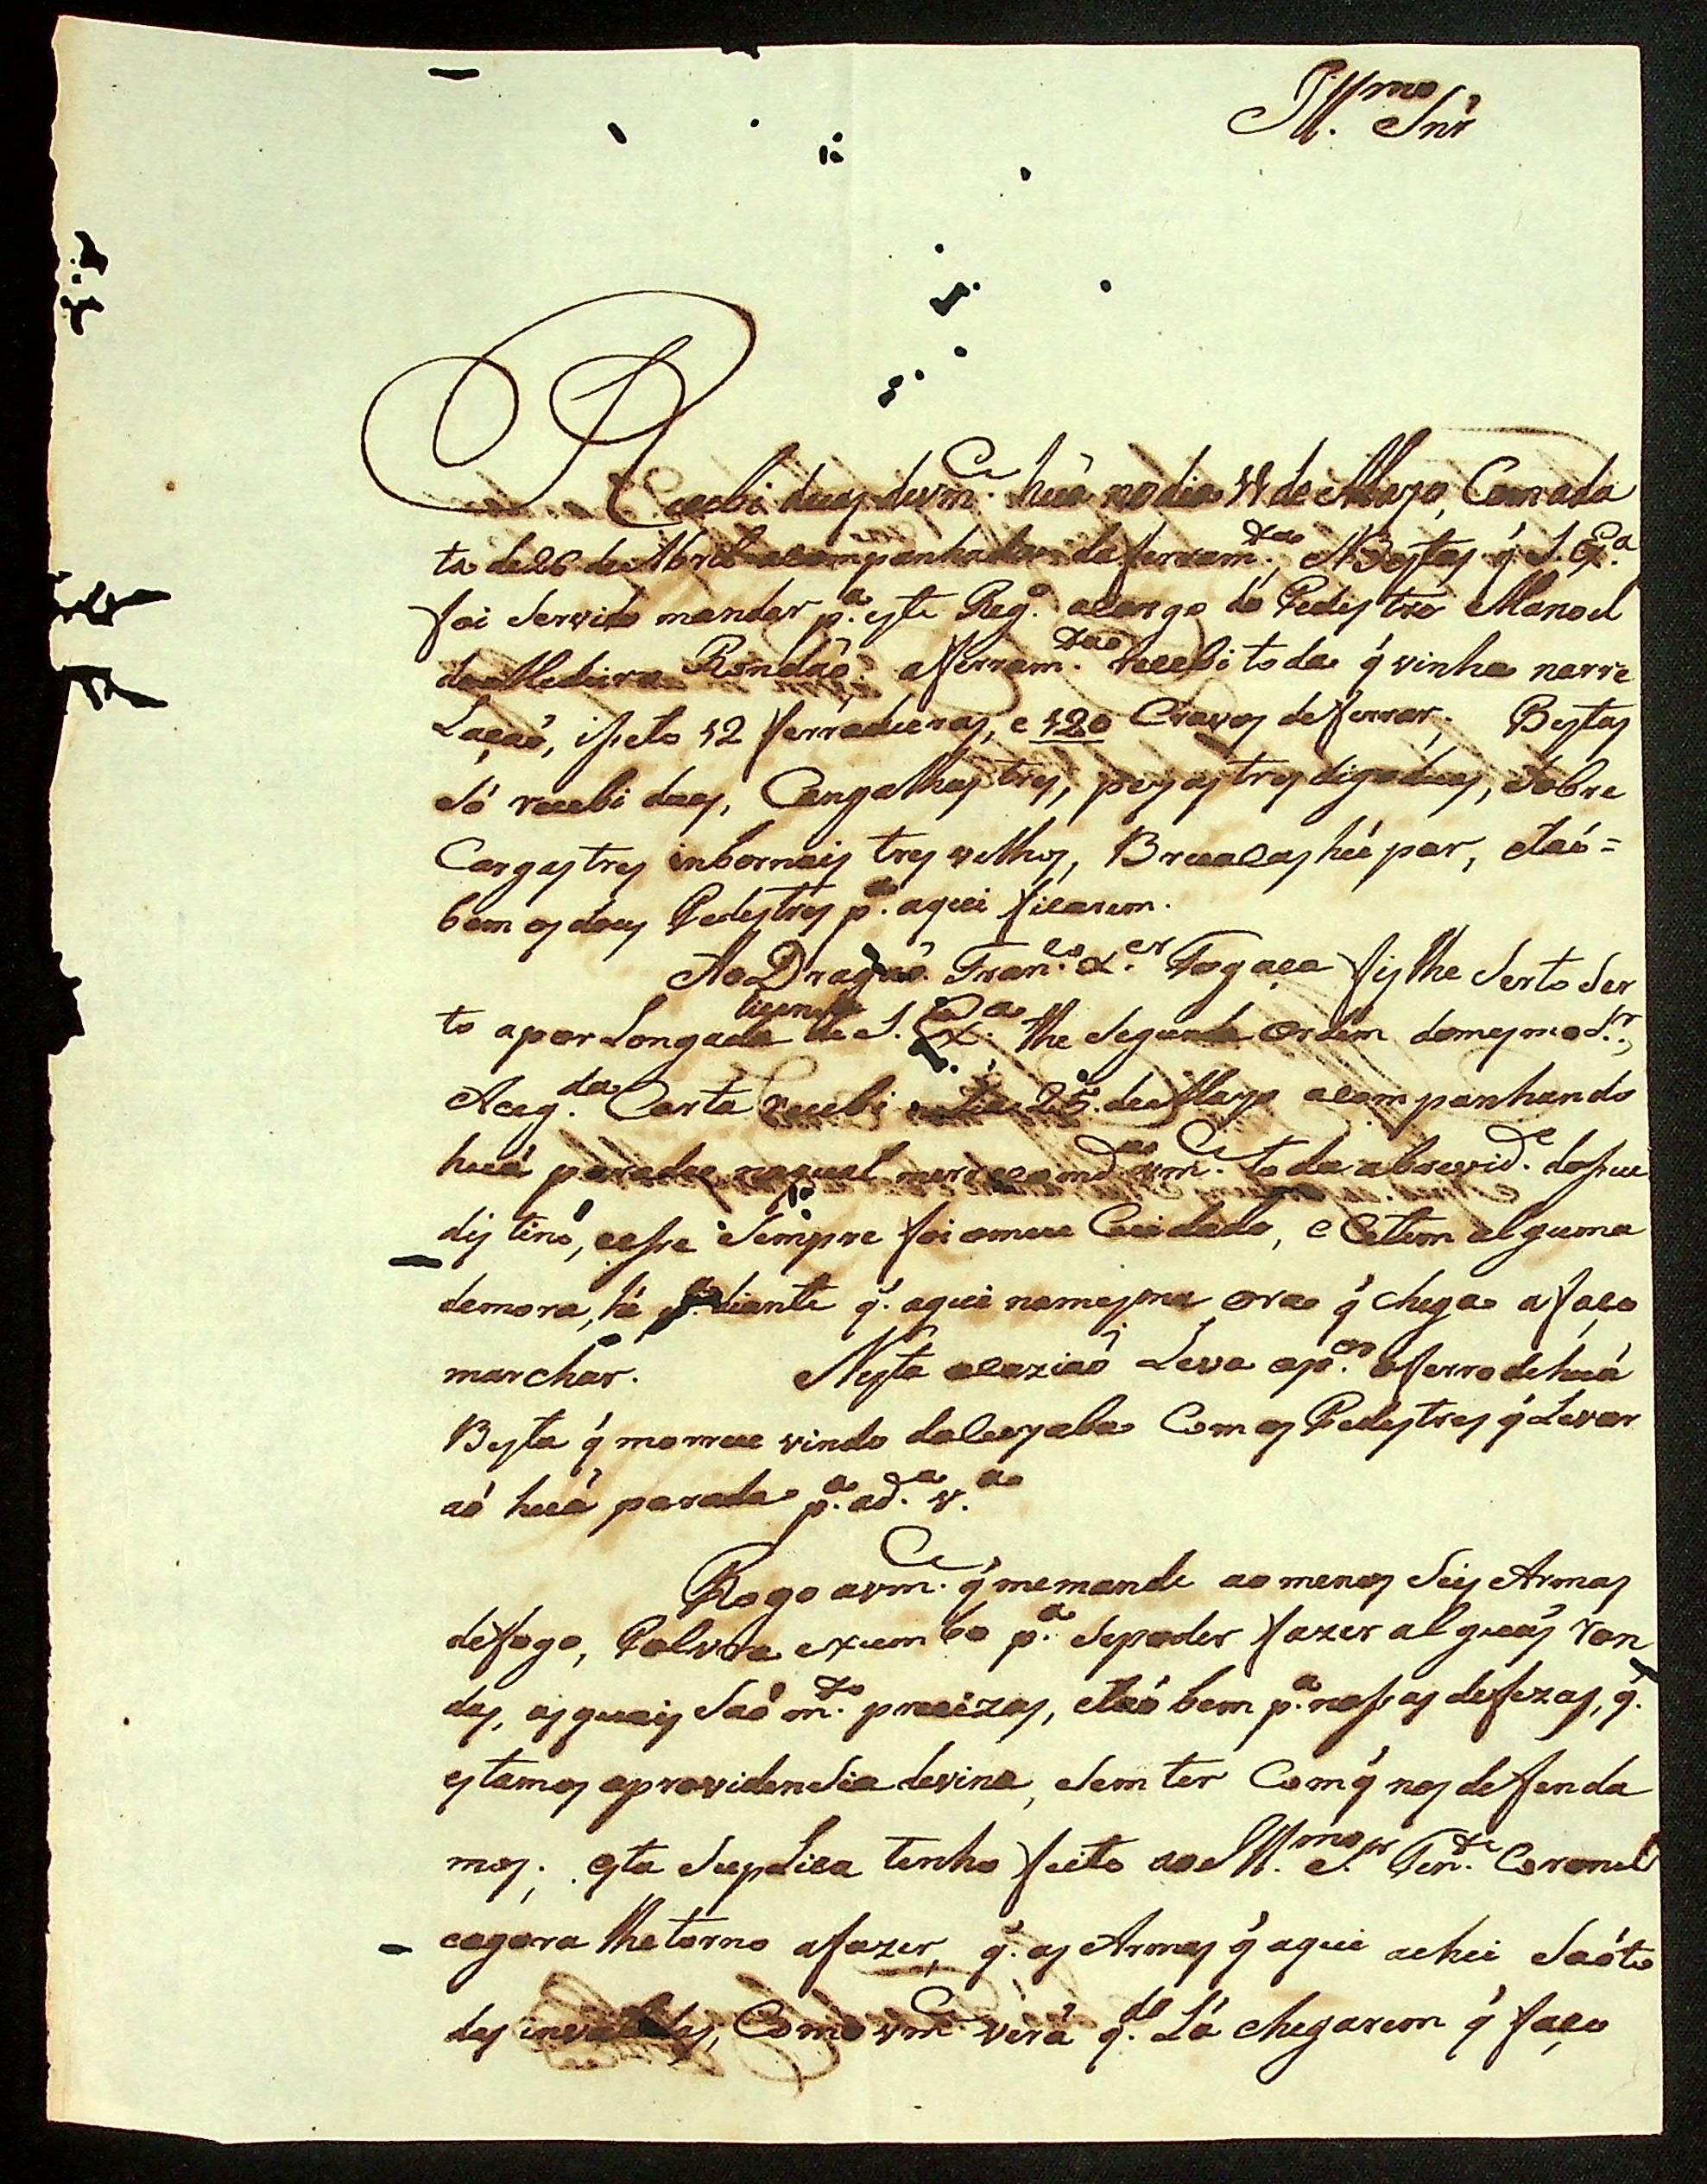 Ill.mo Snr
Recebi duas devm.ce huã no dia 11 de Mayo, Com ada
ta de 26 de Abril acompanhada da ferram.ta, e Bestas q̃ S. Ex.a
foi Servido mandar p.a este Reg.o acargo do Pedistro Manoel
de Medeira Rondaõ; aferram.ta recebi toda q̃ vinha narre
Laçaõ, isseto 12 ferraduras, e 120 Cravos deferrar; Bestas
só recebi duas, Cangalhas tres, pessas tres digo duas, Sobre
Cargas tres inbornais tres velhos, Bruacas hũ par, etaõ=
bem os dous Pedestres p.a aqui ficarem.
Ao Dragaõ Fran.co X.er Fogaça fis lhe Serto Ser
to apor Longada licensa de S. Ex.a lhe Segundo Ordem domesmo S.r,
Aseg.da Carta recebi no dia 25 de Mayo acompanhando
huã parada naqual merecomda vm.ce toda abrevid.e dossue
distino, eesse Sempre foi omeu Cuidado, e Cetem alguma
demora, hé p.a diante q̃ aqui namesma ora q̃ chega afaço
marchar. Nesta acaziaõ Leva op.or oferro dehuã
Besta q̃ morreu vindo doCuyaba Com os Pedestres q̃ Levar
aõ huã parada p.a ad.a v.a
Rogo avm.ce q̃ memande ao menos Seis Armas
defogo, Polvra exumbo p.a Sepoder fazer alguãs Ron
das, as quais Saõ m.to precizas, etaõ bem p.a nossas defezas, q̃
estamos aprovidensia devina, Sem ter Comq̃ nos defenda
mos; esta Suplica tenho feito ao Ill.mo S.r Ten.te Coronel
eagora lhetorno afazer, q̃ as Armas q̃ aqui achei Saõ to
das invalidas, Como vm.ce verá q.do Lá chegarem q̃ faço